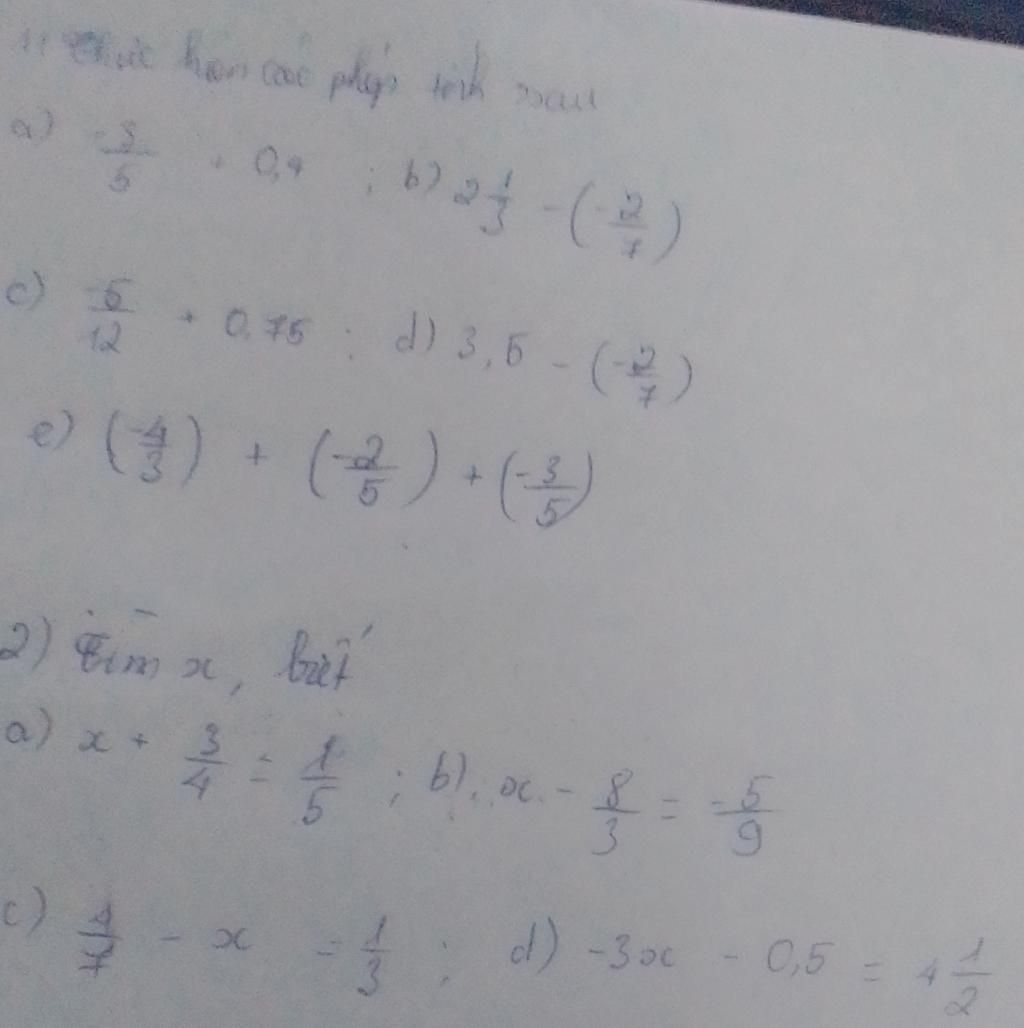 1) Thực hiện các phép tính sau
a) -3/5 + 0,4 ; b) 2 1/3 - (-2/7)
c) -5/12 + 0,75 ; d) 3,5 - (-2/7)
e) (-4/3) + (-2/5) + (-3/5)
2) Tìm x, biết
a) x + 3/4 = 1/5 ; b) x - 8/3 = -5/9
c) 4/7 - x = 1/3 ; d) -3x - 0,5 = 4 1/2